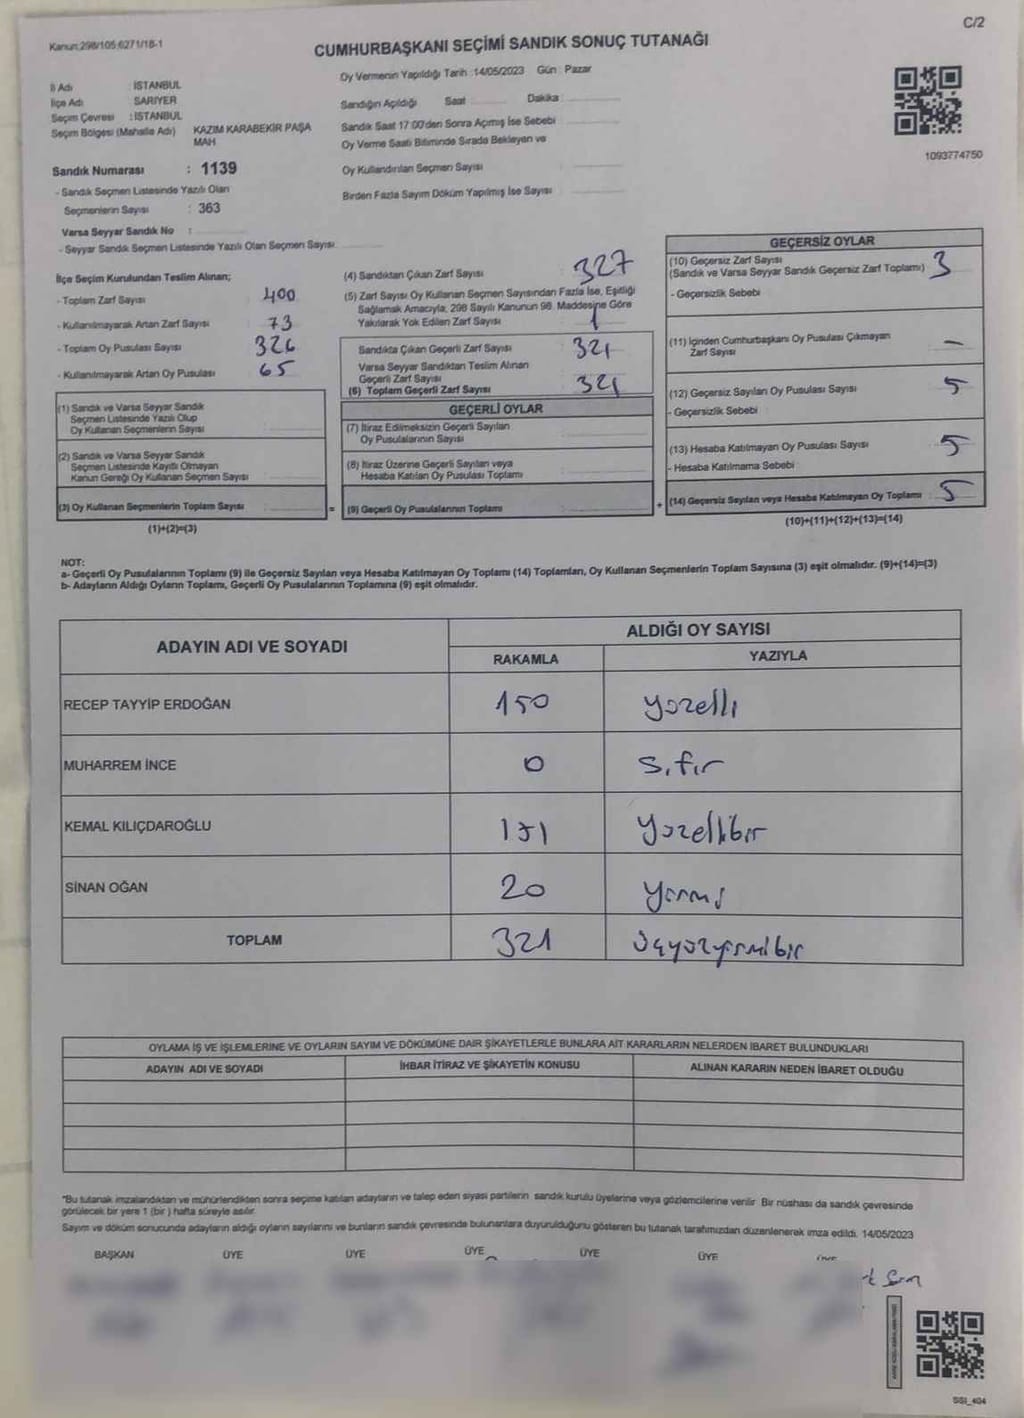 C/2
Kanun:298/105;6271/18-1
CUMHURBAŞKANI SEÇİMİ SANDIK SONUÇ TUTANAĞI
İl Adı : İSTANBUL
İlçe Adı : SARIYER
Seçim Çevresi : İSTANBUL
Seçim Bölgesi (Mahalle Adı) KAZIM KARABEKİR PAŞA MAH
Sandık Numarası : 1139
- Sandık Seçmen Listesinde Yazılı Olan
Seçmenlerin Sayısı : 363
Varsa Seyyar Sandık No :
- Seyyar Sandık Seçmen Listesinde Yazılı Olan Seçmen Sayısı
Oy Vermenin Yapıldığı Tarih :14/05/2023 Gün : Pazar
Sandığın Açıldığı Saat Dakika :
Sandık Saat 17:00'den Sonra Açımış İse Sebebi :
Oy Verme Saati Bitiminde Sırada Bekleyen ve
Oy Kullandırılan Seçmen Sayısı
Birden Fazla Sayım Döküm Yapılmış İse Sayısı
1093774750
İlçe Seçim Kurulundan Teslim Alınan;
- Toplam Zarf Sayısı 400
- Kullanılmayarak Artan Zarf Sayısı 73
- Toplam Oy Pusulası Sayısı 326
- Kullanılmayarak Artan Oy Pusulası 65
(1) Sandık ve Varsa Seyyar Sandık
Seçmen Listesinde Yazılı Olup
Oy Kullanan Seçmenlerin Sayısı
(2) Sandık ve Varsa Seyyar Sandık
Seçmen Listesinde Kayıtlı Olmayan
Kanun Gereği Oy Kullanan Seçmen Sayısı
(3) Oy Kullanan Seçmenlerin Toplam Sayısı =
(1)+(2)=(3)
(4) Sandıktan Çıkan Zarf Sayısı 327
(5) Zarf Sayısı Oy Kullanan Seçmen Sayısından Fazla İse, Eşitliği
Sağlamak Amacıyla, 298 Sayılı Kanunun 98. Maddesine Göre
Yakılarak Yok Edilen Zarf Sayısı 1
Sandıkta Çıkan Geçerli Zarf Sayısı 321
Varsa Seyyar Sandıktan Teslim Alınan
Geçerli Zarf Sayısı
(6) Toplam Geçerli Zarf Sayısı 321
GEÇERLİ OYLAR
(7) İtiraz Edilmeksizin Geçerli Sayılan
Oy Pusulalarının Sayısı
(8) İtiraz Üzerine Geçerli Sayılan veya
Hesaba Katılan Oy Pusulası Toplamı
(9) Geçerli Oy Pusulalarının Toplamı +
GEÇERSİZ OYLAR
(10) Geçersiz Zarf Sayısı
(Sandık ve Varsa Seyyar Sandık Geçersiz Zarf Toplamı) 3
- Geçersizlik Sebebi
(11) İçinden Cumhurbaşkanı Oy Pusulası Çıkmayan
Zarf Sayısı -
(12) Geçersiz Sayılan Oy Pusulası Sayısı 5
- Geçersizlik Sebebi
(13) Hesaba Katılmayan Oy Pusulası Sayısı 5
- Hesaba Katılmama Sebebi
(14) Geçersiz Sayılan veya Hesaba Katılmayan Oy Toplamı : 5
(10)+(11)+(12)+(13)=(14)
NOT:
a- Geçerli Oy Pusulalarının Toplamı (9) ile Geçersiz Sayılan veya Hesaba Katılmayan Oy Toplamı (14) Toplamları, Oy Kullanan Seçmenlerin Toplam Sayısına (3) eşit olmalıdır. (9)+(14)=(3)
b- Adayların Aldığı Oyların Toplamı, Geçerli Oy Pusulalarının Toplamına (9) eşit olmalıdır.
ADAYIN ADI VE SOYADI
ALDIĞI OY SAYISI
RAKAMLA YAZIYLA
RECEP TAYYİP ERDOĞAN 150 yüzelli
MUHARREM İNCE 0 sıfır
KEMAL KILIÇDAROĞLU 151 yüzellibir
SİNAN OĞAN 20 yirmi
TOPLAM 321 üçyüzyirmibir
OYLAMA İŞ VE İŞLEMLERİNE VE OYLARIN SAYIM VE DÖKÜMÜNE DAİR ŞİKAYETLERLE BUNLARA AİT KARARLARIN NELERDEN İBARET BULUNDUKLARI
ADAYIN ADI VE SOYADI İHBAR İTİRAZ VE ŞİKAYETİN KONUSU ALINAN KARARIN NEDEN İBARET OLDUĞU
*Bu tutanak imzalandıktan ve mühürlendikten sonra seçime katılan adayların ve talep eden siyasi partilerin sandık kurulu üyelerine veya gözlemcilerine verilir. Bir nüshası da sandık çevresinde
görülecek bir yere 1 (bir ) hafta süreyle asılır.
Sayım ve döküm sonucunda adayların aldığı oyların sayılarını ve bunların sandık çevresinde bulunanlara duyurulduğunu gösteren bu tutanak tarafımızdan düzenlenerek imza edildi. 14/05/2023
BAŞKAN ÜYE ÜYE ÜYE ÜYE ÜYE ÜYE
SSI_404